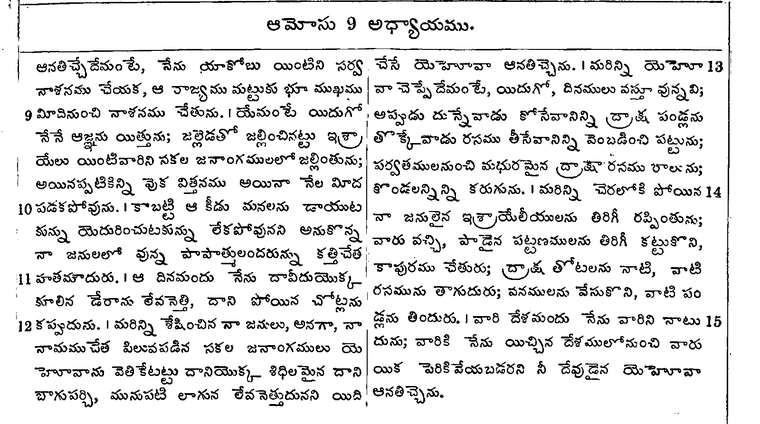 ఆమోసు 9 అధ్యాయము.
ఆనతిచ్చేదేమంటే, నేను యాకోబు యింటిని సర్వ
నాశనము చేయక, ఆ రాజ్యము మట్టుకు భూ ముఖము
9 మీదినుంచి నాశనము చేతును. । యేమంటే యిదుగో
నేనే ఆజ్ఞను యిత్తును; జల్లెడతో జల్లించినట్టు ఇశ్రా
యేలు యింటివారిని సకల జనాంగములలో జల్లింతును;
అయినప్పటికిన్ని వొక విత్తనము అయినా నేల మీద
10 పడకపోవును. । కాబట్టి ఆ కీడు మనలను డాయుట
కున్ను యెదురించుటకున్ను లేకపోవునని అనుకొన్న
నా జనులలో వున్న పాపాత్ములందరున్ను కత్తిచేత
11 హతమౌదురు. । ఆ దినమందు నేను దావీదుయొక్క
కూలిన డేరాను లేవనెత్తి, దాని పోయిన చోట్లను
12 కప్పుదును. । మరిన్ని శేషించిన నా జనులు, అనగా, నా
నామముచేత పిలువపడిన సకల జనాంగములు యె
హెూవాను వెతికేటట్టు దానియొక్క శిధిలమైన దాని
బాగుపర్చి, మునుపటి లాగున లేవనెత్తుదునని యిది
చేసే యెహెూవా ఆనతిచ్చెను. । మరిన్ని యెహెూ 13
వా చెప్పేదేమంటే, యిదుగో, దినములు వస్తూ వున్నవి;
అప్పుడు దున్నేవాడు కోసేవానిన్ని ద్రాక్ష పండ్లను
తొక్కేవాడు రసము తీసేవానిన్ని వెంబడించి పట్టును;
పర్వతములనుంచి మధురమైన ద్రాక్షా రసము రాలును;
కొండలన్నిన్ని కరుగును. । మరిన్ని చెరలోకి పోయిన 14
నా జనులైన ఇశ్రాయేలీయులను తిరిగీ రప్పింతును;
వారు వచ్చి, పాడైన పట్టణములను తిరిగీ కట్టుకొని,
కాపురము చేతురు; ద్రాక్ష తోటలను నాటి, వాటి
రసమును తాగుదురు; వనములను వేసుకొని, వాటి పం
డ్లను తిందురు. । వారి దేశమందు నేను వారిని నాటు 15
దును; వారికి నేను యిచ్చిన దేశములోనుంచి వారు
యిక పెరికివేయబడరని నీ దేవుడైన యెహెూవా
ఆనతిచ్చెను.